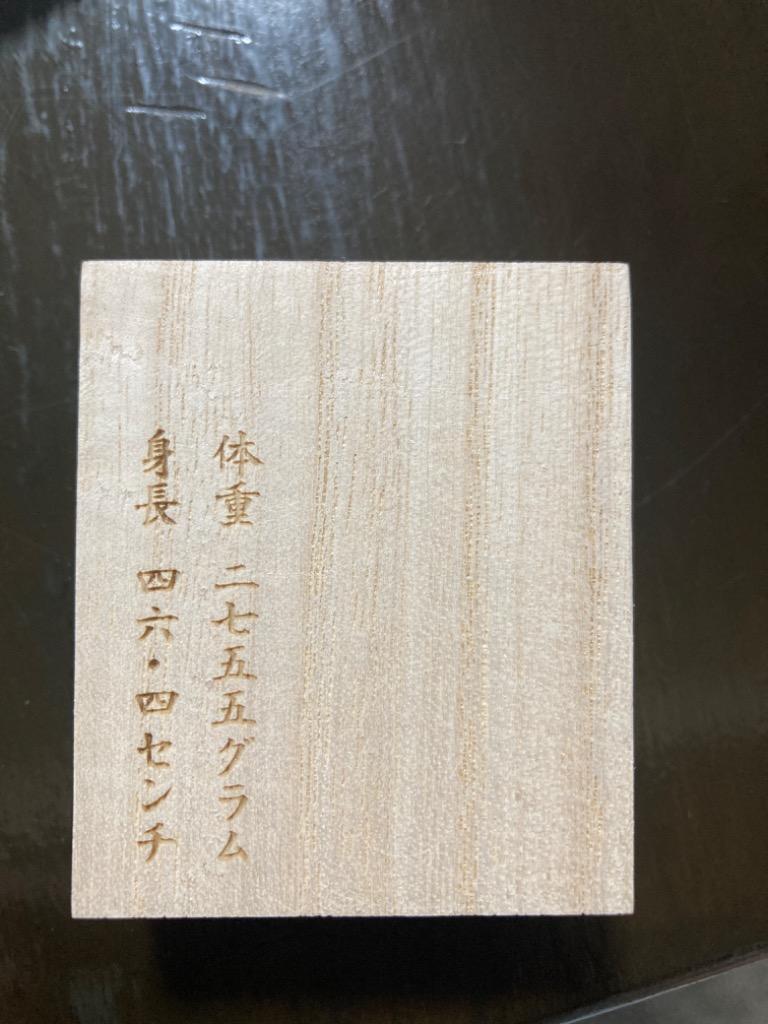 体重 二七五五グラム
身長 四六・四センチ